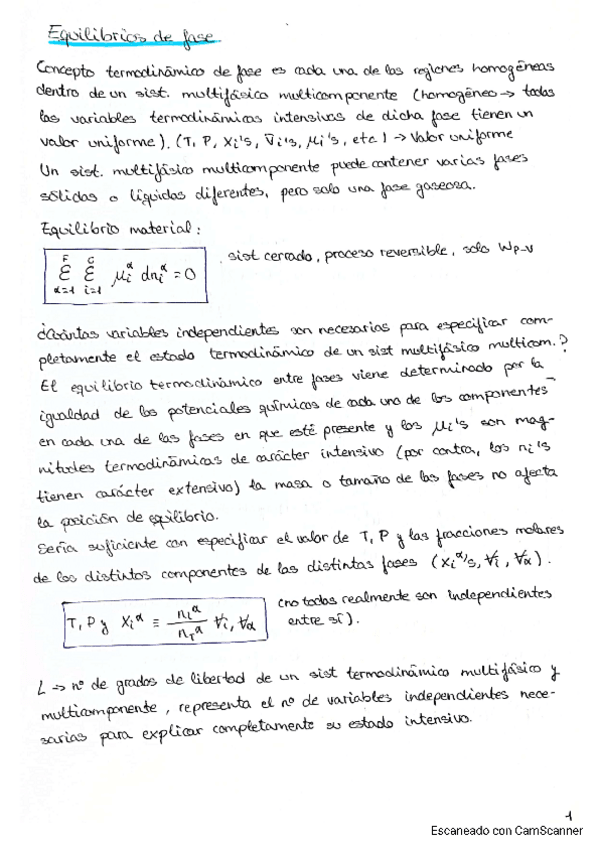 Equilibrios de fase
Concepto termodinámico de fase es cada una de las regiones homogéneas
dentro de un sist. multifásico multicomponente (homogéneo → todas
las variables termodinámicas intensivas de dicha fase tienen un
valor uniforme). (T, P, Xi's, V̄i's, μi's, etc) → Valor uniforme
Un sist. multifásico multicomponente puede contener varias fases
sólidas o líquidas diferentes, pero solo una fase gaseosa.
Equilibrio material:
Σ_{α=1}^{F} Σ_{i=1}^{C} μi^α dni^α = 0
sist cerrado, proceso reversible, solo Wp-v
¿Cuántas variables independientes son necesarias para especificar com-
pletamente el estado termodinámico de un sist multifásico multicom.?
El equilibrio termodinámico entre fases viene determinado por la
igualdad de los potenciales químicos de cada uno de los componentes
en cada una de las fases en que esté presente y los μi's son mag-
nitudes termodinámicas de carácter intensivo (por contra, los ni's
tienen carácter extensivo) la masa o tamaño de las fases no afecta
la posición de equilibrio.
Sería suficiente con especificar el valor de T, P y las fracciones molares
de los distintos componentes de las distintas fases (xi^α's, ∀i, ∀α).
T, P y Xi^α ≡ ni^α / nT^α ∀i, ∀α
(no todas realmente son independientes
entre sí).
L → nº de grados de libertad de un sist termodinámico multifásico y
multicomponente, representa el nº de variables independientes nece-
sarias para explicar completamente su estado intensivo.
1
Escaneado con CamScanner